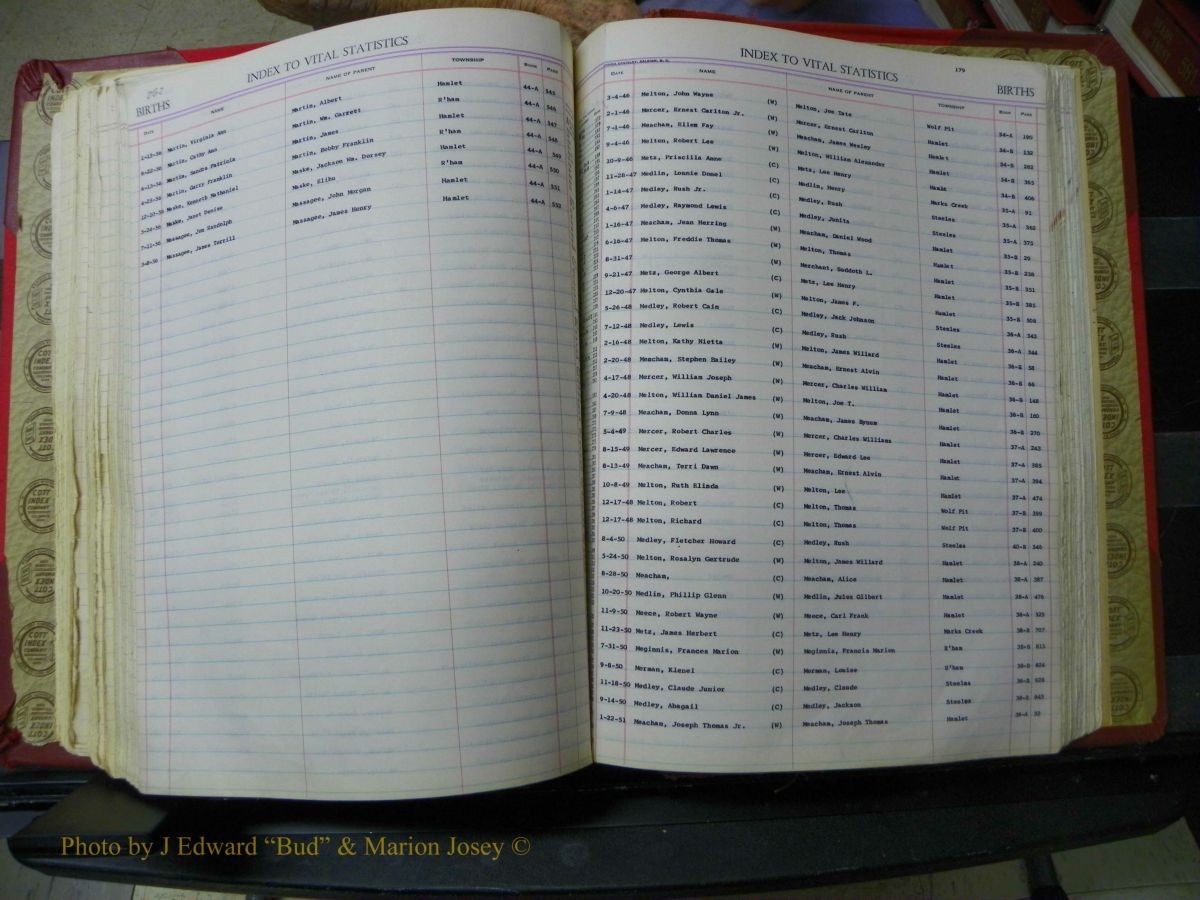 262
INDEX TO VITAL STATISTICS
BIRTHS
DATE NAME NAME OF PARENT TOWNSHIP BOOK PAGE
1-13-56 Martin, Virginia Ann Martin, Albert Hamlet 44-A 545
8-22-56 Martin, Cathy Ann Martin, Wm. Garrett R'ham 44-A 546
6-13-56 Martin, Sandra Patricia Martin, James Hamlet 44-A 547
4-25-56 Martin, Garry Franklin Martin, Bobby Franklin R'ham 44-A 548
12-20-56 Maske, Kenneth Nathaniel Maske, Jackson Wm. Dorsey Hamlet 44-A 549
5-24-56 Maske, Janet Denise Maske, Elihu R'ham 44-A 550
7-11-56 Massagee, Jon Randolph Massagee, John Morgan Hamlet 44-A 551
3-8-56 Massagee, James Terrill Massagee, James Henry Hamlet 44-A 552
179
INDEX TO VITAL STATISTICS
BIRTHS
DATE NAME NAME OF PARENT TOWNSHIP BOOK PAGE
3-4-46 Melton, John Wayne (W) Melton, Joe Tate Wolf Pit 34-A 190
2-1-46 Mercer, Ernest Carlton Jr. (W) Mercer, Ernest Carlton Hamlet 34-B 132
7-1-46 Meacham, Ellem Fay (W) Meacham, James Wesley Hamlet 34-B 262
9-4-46 Melton, Robert Lee (W) Melton, William Alexander Hamlet 34-B 365
10-9-46 Metz, Priscilla Anne (C) Metz, Lee Henry Hamlt 34-B 406
11-28-47 Medlin, Lonnie Domel (C) Medlin, Henry Marks Creek 35-A 91
1-14-47 Medley, Rush Jr. (C) Medley, Rush Steeles 35-A 362
4-6-47 Medley, Raymond Lewis (C) Medley, Junita Steeles 35-A 375
1-16-47 Meacham, Jean Herring (W) Meacham, Daniel Wood Hamlet 35-B 29
6-16-47 Melton, Freddie Thomas (W) Melton, Thomas Hamlet 35-B 236
8-31-47 (W) Merchant, Suddoth L. Hamlet 35-B 351
9-21-47 Metz, George Albert (C) Metz, Lee Henry Hamlet 35-B 385
12-20-47 Melton, Cynthia Gale (W) Melton, James F. Hamlet 35-B 508
5-26-48 Medley, Robert Cain (C) Medley, Jack Johnson Steeles 36-A 343
7-12-48 Medley, Lewis (C) Medley, Rush Steeles 36-A 344
2-16-48 Melton, Kathy Nietta (W) Melton, James Willard Hamlet 36-B 58
2-20-48 Meacham, Stephen Bailey (W) Meacham, Ernest Alvin Hamlet 36-B 66
4-17-48 Mercer, William Joseph (W) Mercer, Charles William Hamlet 36-B 148
4-20-48 Melton, William Daniel James (W) Melton, Joe T. Hamlet 36-B 160
7-9-48 Meacham, Donna Lynn (W) Meacham, James Bynum Hamlet 36-B 270
5-4-49 Mercer, Robert Charles (W) Mercer, Charles Williams Hamlet 37-A 243
8-15-49 Mercer, Edward Lawrence (W) Mercer, Edward Lee Hamlet 37-A 385
8-13-49 Meacham, Terri Dawn (W) Meacham, Ernest Alvin Hamlet 37-A 394
10-8-49 Melton, Ruth Elinda (W) Melton, Lee Hamlet 37-A 474
12-17-48 Melton, Robert (C) Melton, Thomas Wolf Pit 37-B 399
12-17-48 Melton, Richard (C) Melton, Thomas Wolf Pit 37-B 400
8-4-50 Medley, Fletcher Howard (C) Medley, Rush Steeles 40-B 346
5-24-50 Melton, Rosalyn Gertrude (W) Melton, James Willard Hamlet 38-A 240
8-28-50 Meacham, (C) Meacham, Alice Hamlet 38-A 387
10-20-50 Medlin, Phillip Glenn (W) Medlin, Jules Gilbert Hamlet 38-A 476
11-9-50 Meece, Robert Wayne (W) Meece, Carl Frank Hamlet 38-A 525
11-23-50 Metz, James Herbert (C) Metz, Lee Henry Marks Creek 38-B 707
7-31-50 Meginnis, Frances Marion (W) Meginnis, Francis Marion R'ham 38-B 815
9-8-50 Merman, Klenel (C) Merman, Louise R'ham 38-B 824
11-18-50 Medley, Claude Junior (C) Medley, Claude Steelms 38-B 828
9-14-50 Medley, Abagail (C) Medley, Jackson Steeles 38-B 845
1-22-51 Meacham, Joseph Thomas Jr. (W) Meacham, Joseph Thomas Hamlet 39-A 32
COTT INDEX COMPANY
Photo by J Edward “Bud” & Marion Josey ©